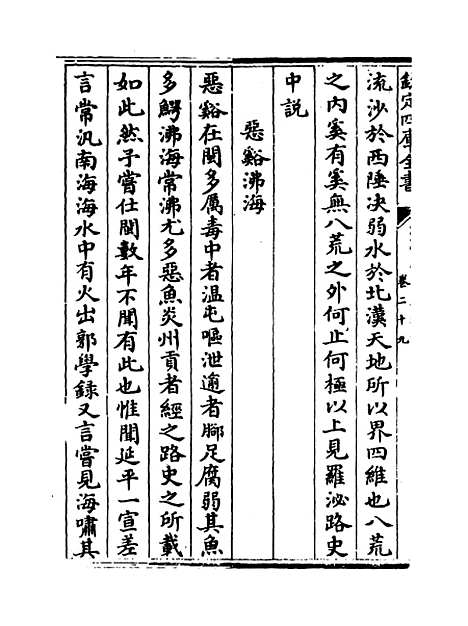 欽定四庫全書
卷二十九
流沙於西陲决弱水於北漠天地所以界四維也八荒
之内奚有奚無八荒之外何止何極以上見羅泌路史
中説
惡谿沸海
惡谿在閩多厲毒中者温屯嘔泄逾者腳足腐弱其魚
多鰐沸海常沸尤多惡魚炎州貢者經之路史之所載
如此然予嘗仕閩數年不聞有此也惟聞延平一宣差
言常汎南海海水中有火出郭學録又言嘗見海嘯其